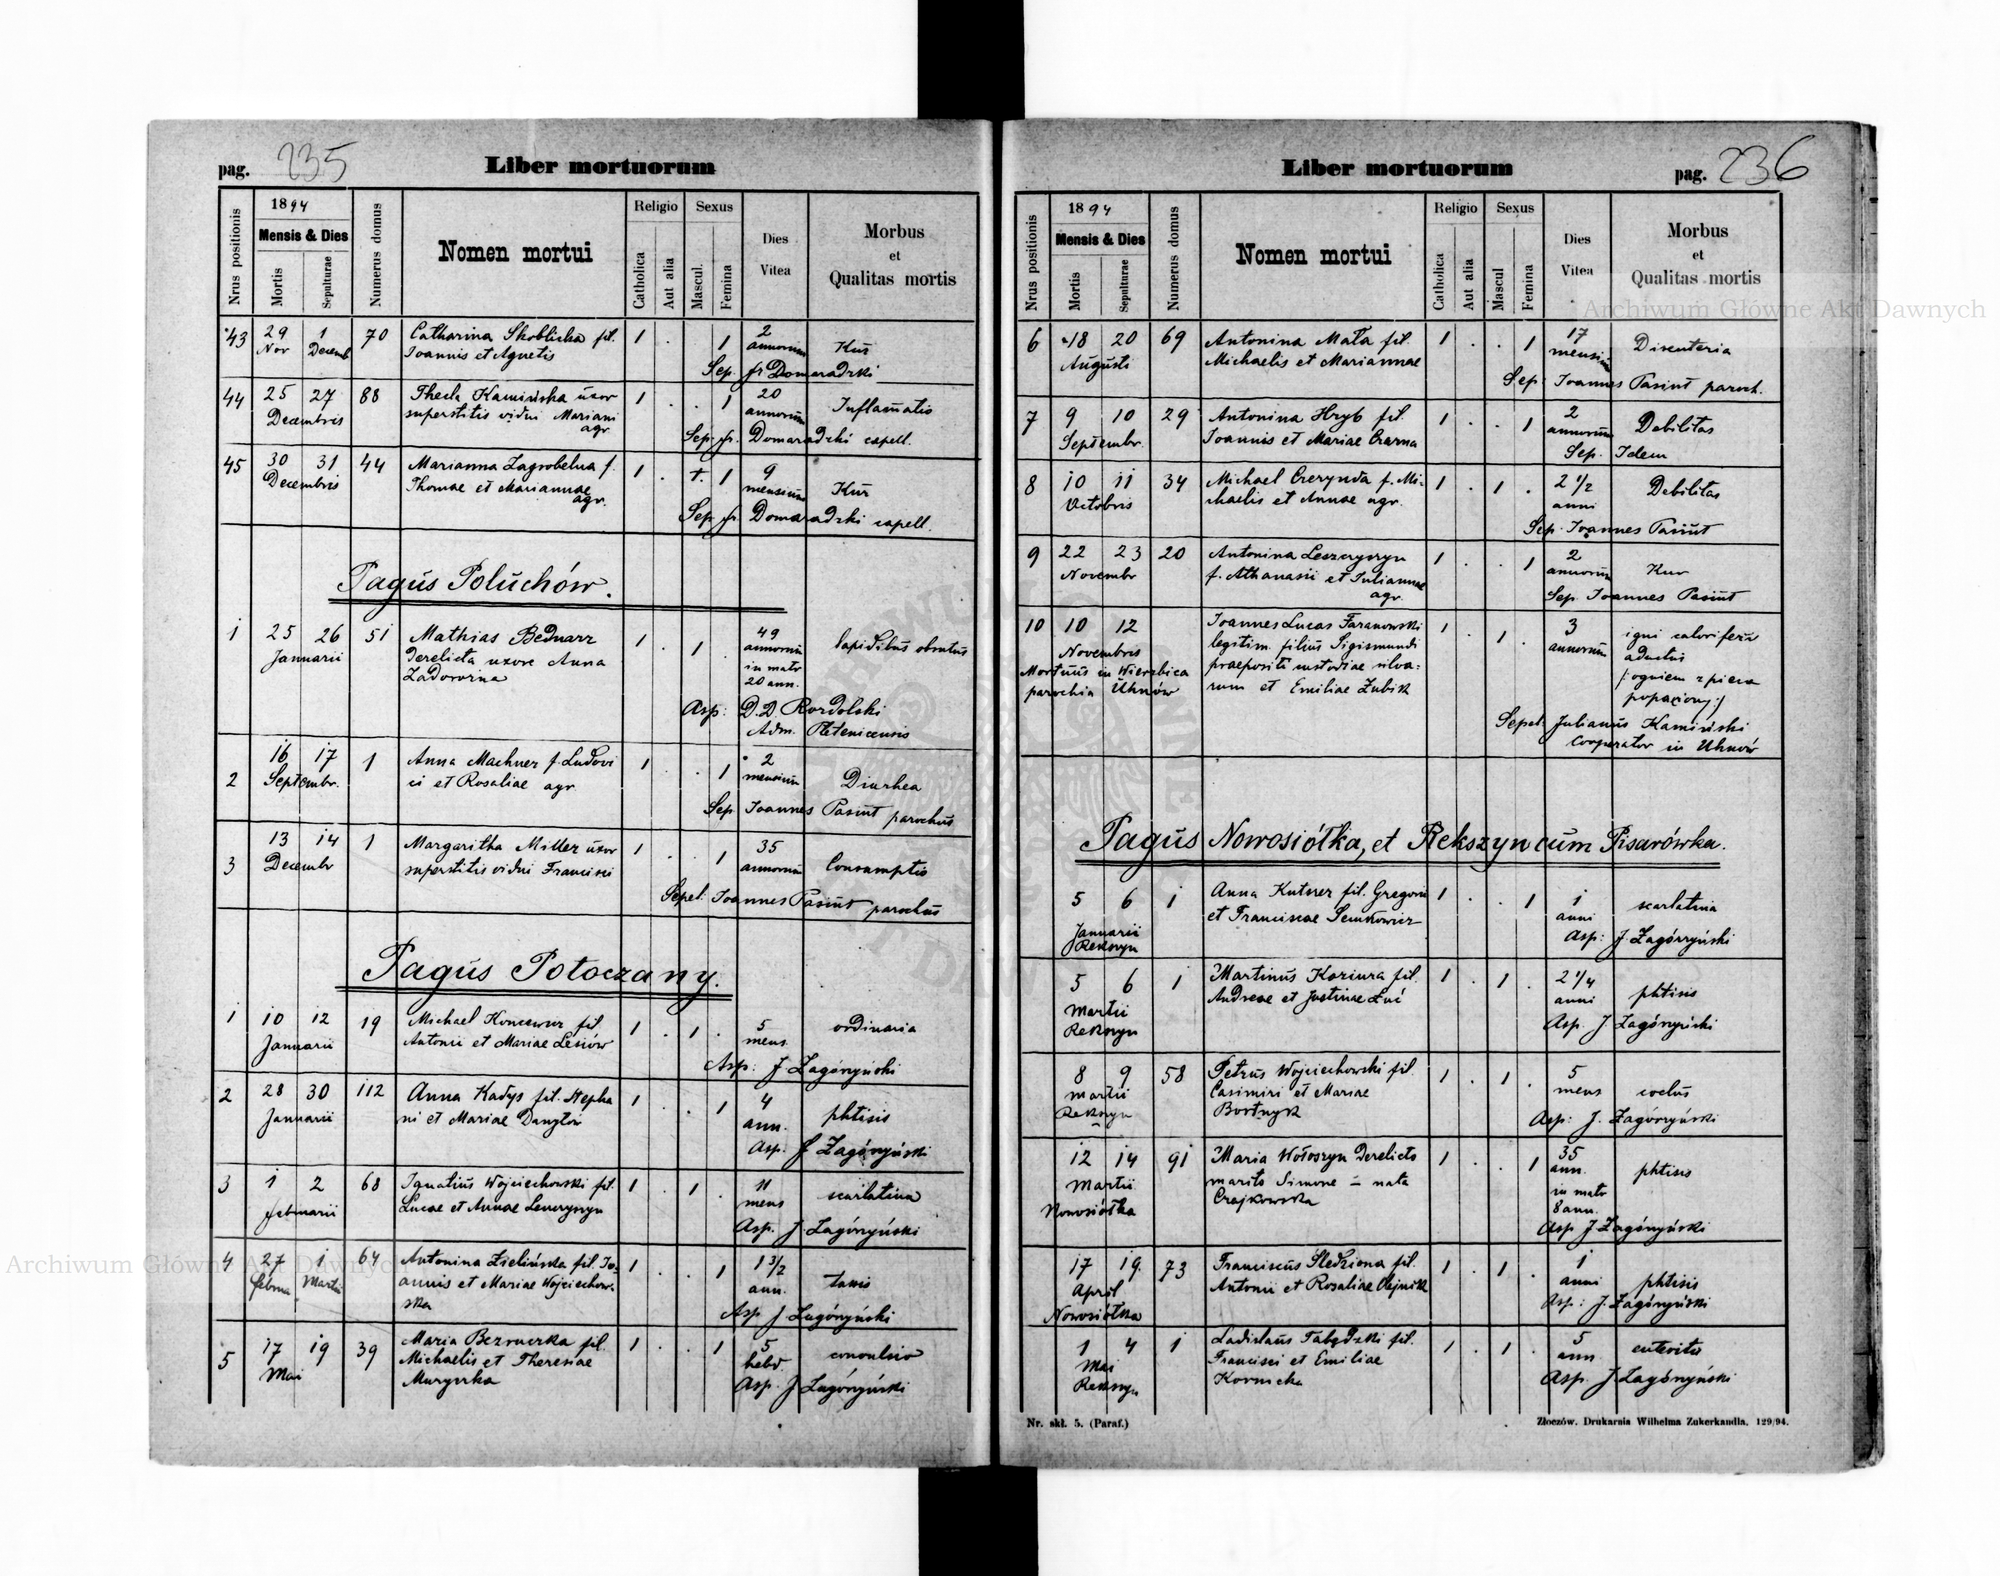 pag. 235
Liber mortuorum
Nrus positionis
1894
Mensis & Dies
Mortis
Sepulturae
Numerus domus
Nomen mortui
Religio
Catholica
Aut alia
Sexus
Mascul.
Femina
Dies
Vitea
Morbus
et
Qualitas mortis
43 29 1 70 Catharina Skoblicka fil. 1 . . 1 2
Nov Decemb Joannis et Agnetis annorum Kur
Sep. fr Domaradzki
44 25 27 88 Thecla Kamińska uxor 1 . . 1 20
Decembris superstitis vidui Mariani annorum Inflamatio
agr
Sep. fr. Domaradzki capell.
45 30 31 44 Marianna Zagrobelna f. 1 . + 1 9
Decembris Thomae et Mariannae mensium Kur
agr.
Sep. fr. Domaradzki capell.
Pagus Poluchów.
1 25 26 51 Mathias Bednarz 1 . 1 . 49
Januarii derelicta uxore Anna annorum lapidibus obrutus
in matr
20 ann.
Asp: D.D
Adm.
2 16 17 1 Anna Machner f. Ludovi 1 . . 1 2
Septembr. ci et Rosaliae agr mensium Diarhea
Sep Joannes Pasiut parochus
3 13 14 1 Margaritha Miller uxor 1 . . 1 35
Decembr superstitis vidui Francisci annorum Consumptio
Sepel: Joannes Pasiut parochus
Pagus Potoczany.
1 10 12 19 Michael fil. 1 . 1 . 5 ordinaria
Januarii Antonii et Mariae Lesiów mens
Asp: J Zagórzyński
2 28 30 112 Anna Kadys fil. Stepha 1 . . 1 4
Januarii ni et Mariae Danylów ann. phtisis
Asp. J Zagórzyński
3 1 2 68 Ignatius Wojciechowski fil. 1 . 1 . 11 scarlatina
februarii Lucae et Annae mens
Asp. J Zagórzyński
4 27 1 64 Antonina Zielińska fil. Jo- 1 . . 1 1 3/2
februa Martii annis et Mariae Wojciechow- ann.
ska
Asp J Zagórzyński
5 17 19 39 Maria fil. 1 . . 1 5 convulsio
Mai Michaelis et Theresiae hebd.
Asp. J Zagórzyński
Liber mortuorum
pag. 236
Nrus positionis
1894
Mensis & Dies
Mortis
Sepulturae
Numerus domus
Nomen mortui
Religio
Catholica
Aut alia
Sexus
Mascul
Femina
Dies
Vitea
Morbus
et
Qualitas mortis
6 18 20 69 Antonina Mała fil. 1 . . 1 17 Disenteria
Augusti Michaelis et Mariannae mensium
Sep: Joannes Pasiut paroch.
7 9 10 29 Antonina Hryb fil. 1 . . 1 2
Septembr. Joannis et Mariae Czarna annorum Debilitas
Sep. Idem
8 10 11 34 Michael Czerynda f. Mi- 1 . 1 . 2 1/2 Debilitas
Octobris chaelis et Annae agr. anni
Sep. Joannes Pasiut
9 22 23 20 Antonina Leszczyszyn 1 . . 1 2
Novembr f. Athanasii et Juliannae annorum Kur
agr.
Sep. Joannes Pasiut
10 10 12 Joannes Lucas Taranowski 1 . 1 . 3 igni caloriferu
Novembris legitim. filius Sigismundi annorum adustus
Mortuus in Wierzbica praepositi custodiae silva- /: ogniem z pieca
parochia Uhnów rum et Emiliae Zubik popażony :/
Sepel: Julianus Kamiński
Cooperator in Uhnów
Pagus Nowosiółka, et Rekszyn cum Pisarówka.
5 6 1 Anna Kutner fil. Gregorii 1 . . 1 1 scarlatina
Januarii et Franciscae Semkowicz anni
Rekszyn
Asp: J. Zagórzyński
5 6 1 Martinus Koziura fil. 1 . 1 . 2 1/4 phtisis
Martii Andreae et Justinae Łuć anni
Rekszyn
Asp. J Zagórzyński
8 9 58 Petrus Wojciechowski fil. 1 . 1 . 5
martii Casimiri et Mariae mens
Rekszyn Bortnyk
Asp: J. Zagórzyński
12 14 91 Maria Wołoszyn derelicto 1 . . 1 35 phtisis
Martii marito Simone - nata ann.
Nowosiółka Czajkowska in matr
8 ann.
Asp J Zagórzyński
17 19. 73 Franciscus Sledziona fil. 1 . 1 . 1 phtisis
April Antonii et Rosaliae Olejnik anni
Nowosiółka
Asp: J. Zagórzyński
1 4 1 Ladislaus Tabędzki fil. 1 . 1 . 5 enteritis
Mai Francisci et Emiliae ann
Rekszyn Kornicka
Asp. J Zagórzyński
Nr. skł. 5. (Paraf.)
Złoczów. Drukarnia Wilhelma Zukerkandla. 129/94.
Archiwum Główne Akt Dawnych
Archiwum Główne Akt Dawnych